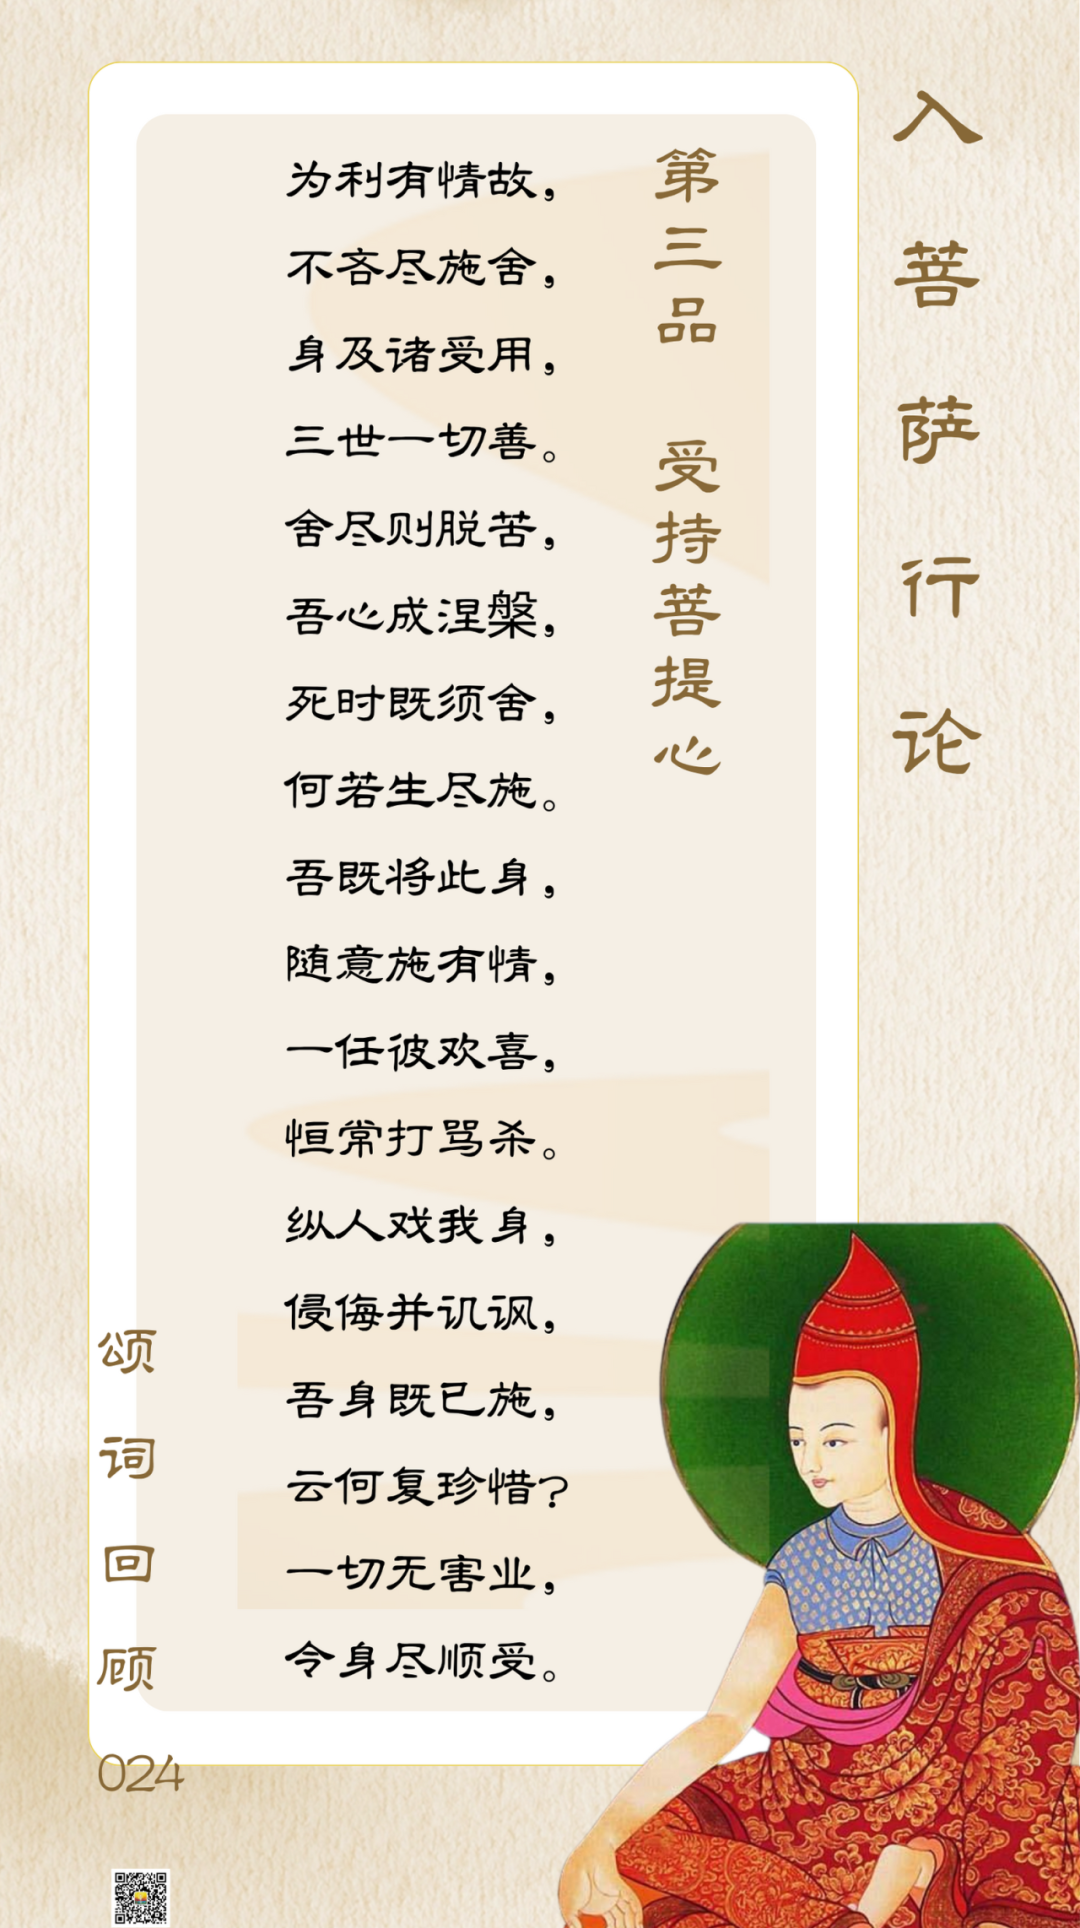 入菩萨行论
第三品 受持菩提心
为利有情故，
不吝尽施舍，
身及诸受用，
三世一切善。
舍尽则脱苦，
吾心成涅槃，
死时既须舍，
何若生尽施。
吾既将此身，
随意施有情，
一任彼欢喜，
恒常打骂杀。
纵人戏我身，
侵侮并讥讽，
吾身既已施，
云何复珍惜？
一切无害业，
令身尽顺受。
颂词回顾
024